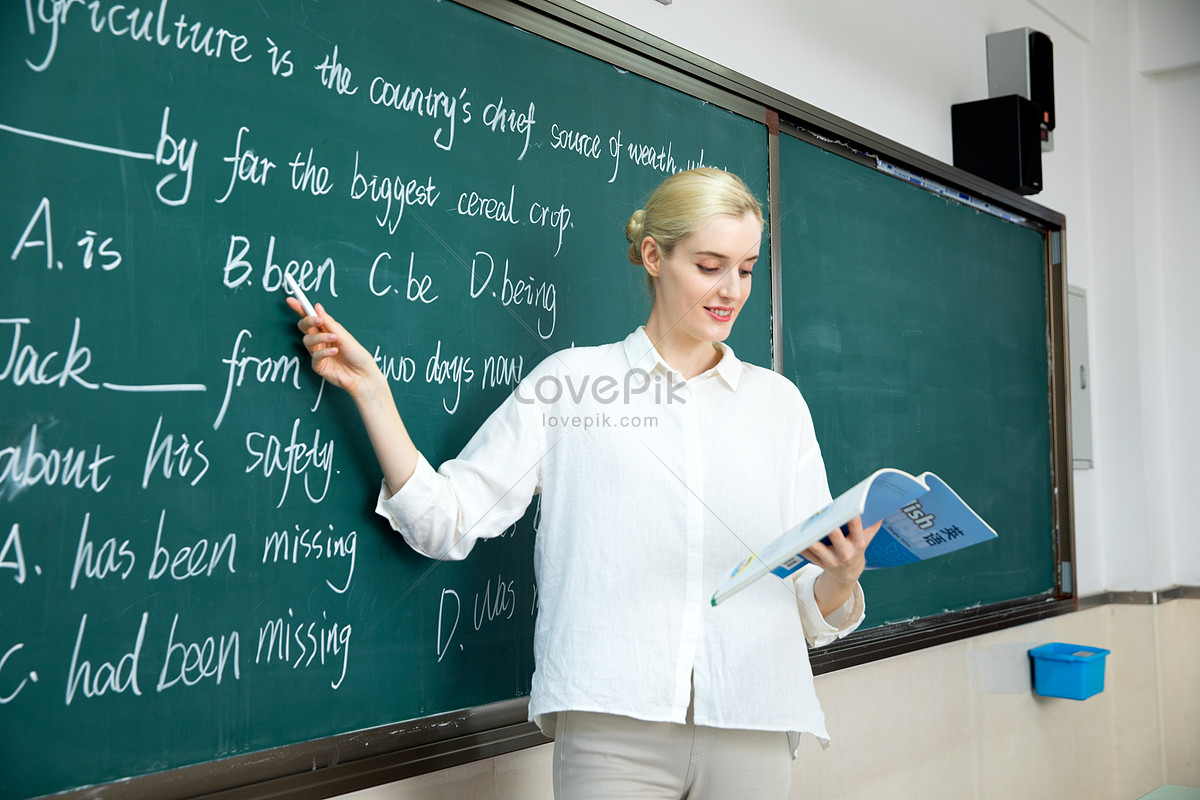 Agriculture is the country's chief source of weath, wh
_____By far the biggest cereal crop.
A. is B. been C. be D. being
Jack_____from two days now
about his safety.
A. has been missing
C. had been missing D. was
LovePik
lovepik.com
lish
英语